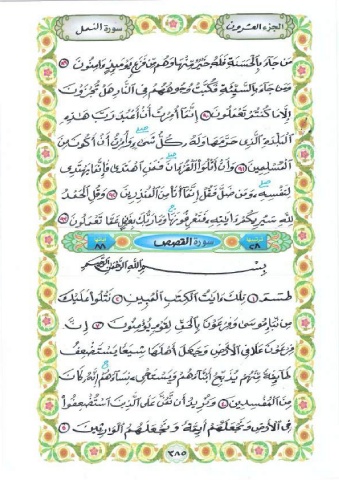 الجزء العشرون
سورة النمل
مَن جَاءَ بِالْحَسَنَةِ فَلَهُ خَيْرٌ مِّنْهَا وَهُم مِّن فَزَعٍ يَوْمَئِذٍ ءَامِنُونَ ٨٩
وَمَن جَاءَ بِالسَّيِّئَةِ فَكُبَّتْ وُجُوهُهُمْ فِي النَّارِ هَلْ تُجْزَوْنَ
إِلَّا مَا كُنتُمْ تَعْمَلُونَ ٩٠ إِنَّمَا أُمِرْتُ أَنْ أَعْبُدَ رَبَّ هَٰذِهِ
الْبَلْدَةِ الَّذِي حَرَّمَهَا وَلَهُ كُلُّ شَيْءٍ وَأُمِرْتُ أَنْ أَكُونَ مِنَ
الْمُسْلِمِينَ ٩١ وَأَنْ أَتْلُوَا الْقُرْءَانَ فَمَنِ اهْتَدَىٰ فَإِنَّمَا يَهْتَدِي
لِنَفْسِهِ وَمَن ضَلَّ فَقُلْ إِنَّمَا أَنَا مِنَ الْمُنذِرِينَ ٩٢ وَقُلِ الْحَمْدُ
لِلَّهِ سَيُرِيكُمْ ءَايَٰتِهِ فَتَعْرِفُونَهَا وَمَا رَبُّكَ بِغَٰفِلٍ عَمَّا تَعْمَلُونَ ٩٣
سورة القصص
٢٨
٨٨
بِسْمِ اللَّهِ الرَّحْمَٰنِ الرَّحِيمِ
طسٓمٓ ١ تِلْكَ ءَايَٰتُ الْكِتَٰبِ الْمُبِينِ ٢ نَتْلُوا عَلَيْكَ
مِن نَّبَإِ مُوسَىٰ وَفِرْعَوْنَ بِالْحَقِّ لِقَوْمٍ يُؤْمِنُونَ ٣ إِنَّ
فِرْعَوْنَ عَلَا فِي الْأَرْضِ وَجَعَلَ أَهْلَهَا شِيَعًا يَسْتَضْعِفُ
طَائِفَةً مِّنْهُمْ يُذَبِّحُ أَبْنَاءَهُمْ وَيَسْتَحْيِ نِسَاءَهُمْ إِنَّهُ كَانَ
مِنَ الْمُفْسِدِينَ ٤ وَنُرِيدُ أَن نَّمُنَّ عَلَى الَّذِينَ اسْتُضْعِفُوا
فِي الْأَرْضِ وَنَجْعَلَهُمْ أَئِمَّةً وَنَجْعَلَهُمُ الْوَٰرِثِينَ ٥
٣٨٥